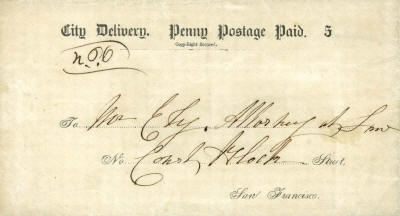 City Delivery. Penny Postage Paid. 5
Copy-Right Secured.
n.P.O
To Mr Ely. Attorney at Law
No. Court Block Street.
San Francisco.